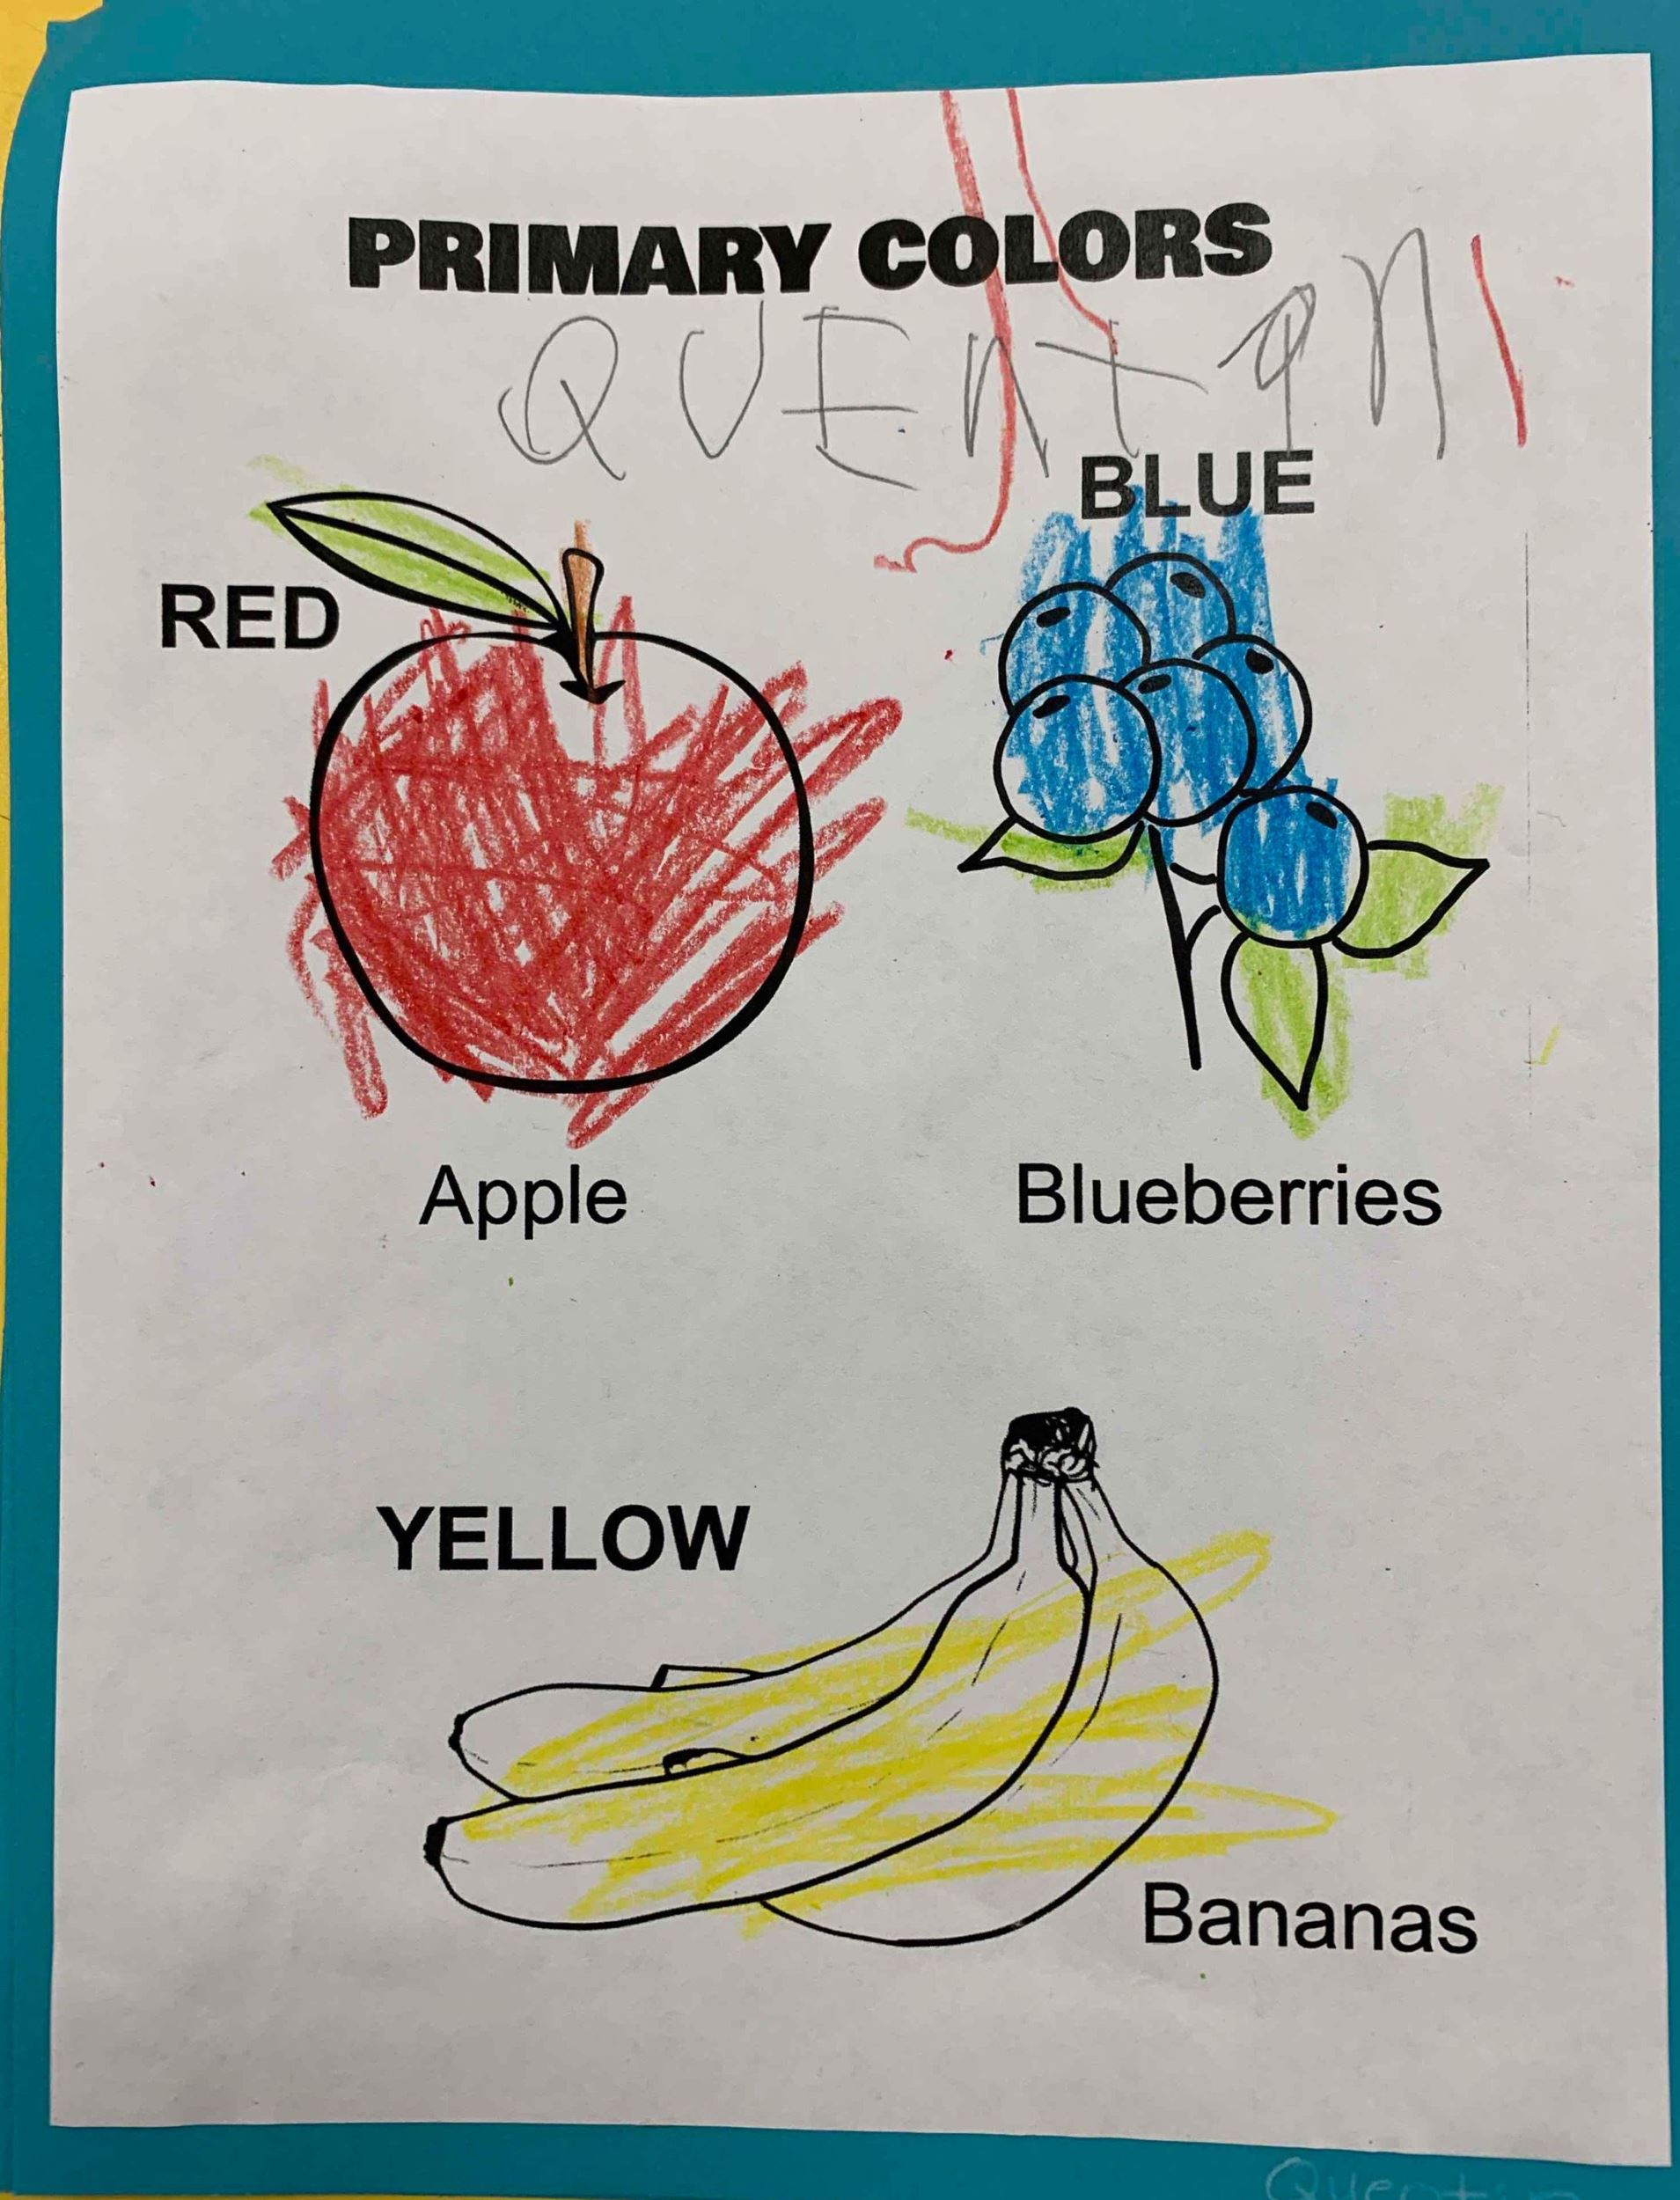 PRIMARY COLORS
QUENTIN
BLUE
RED
Apple
Blueberries
YELLOW
Bananas